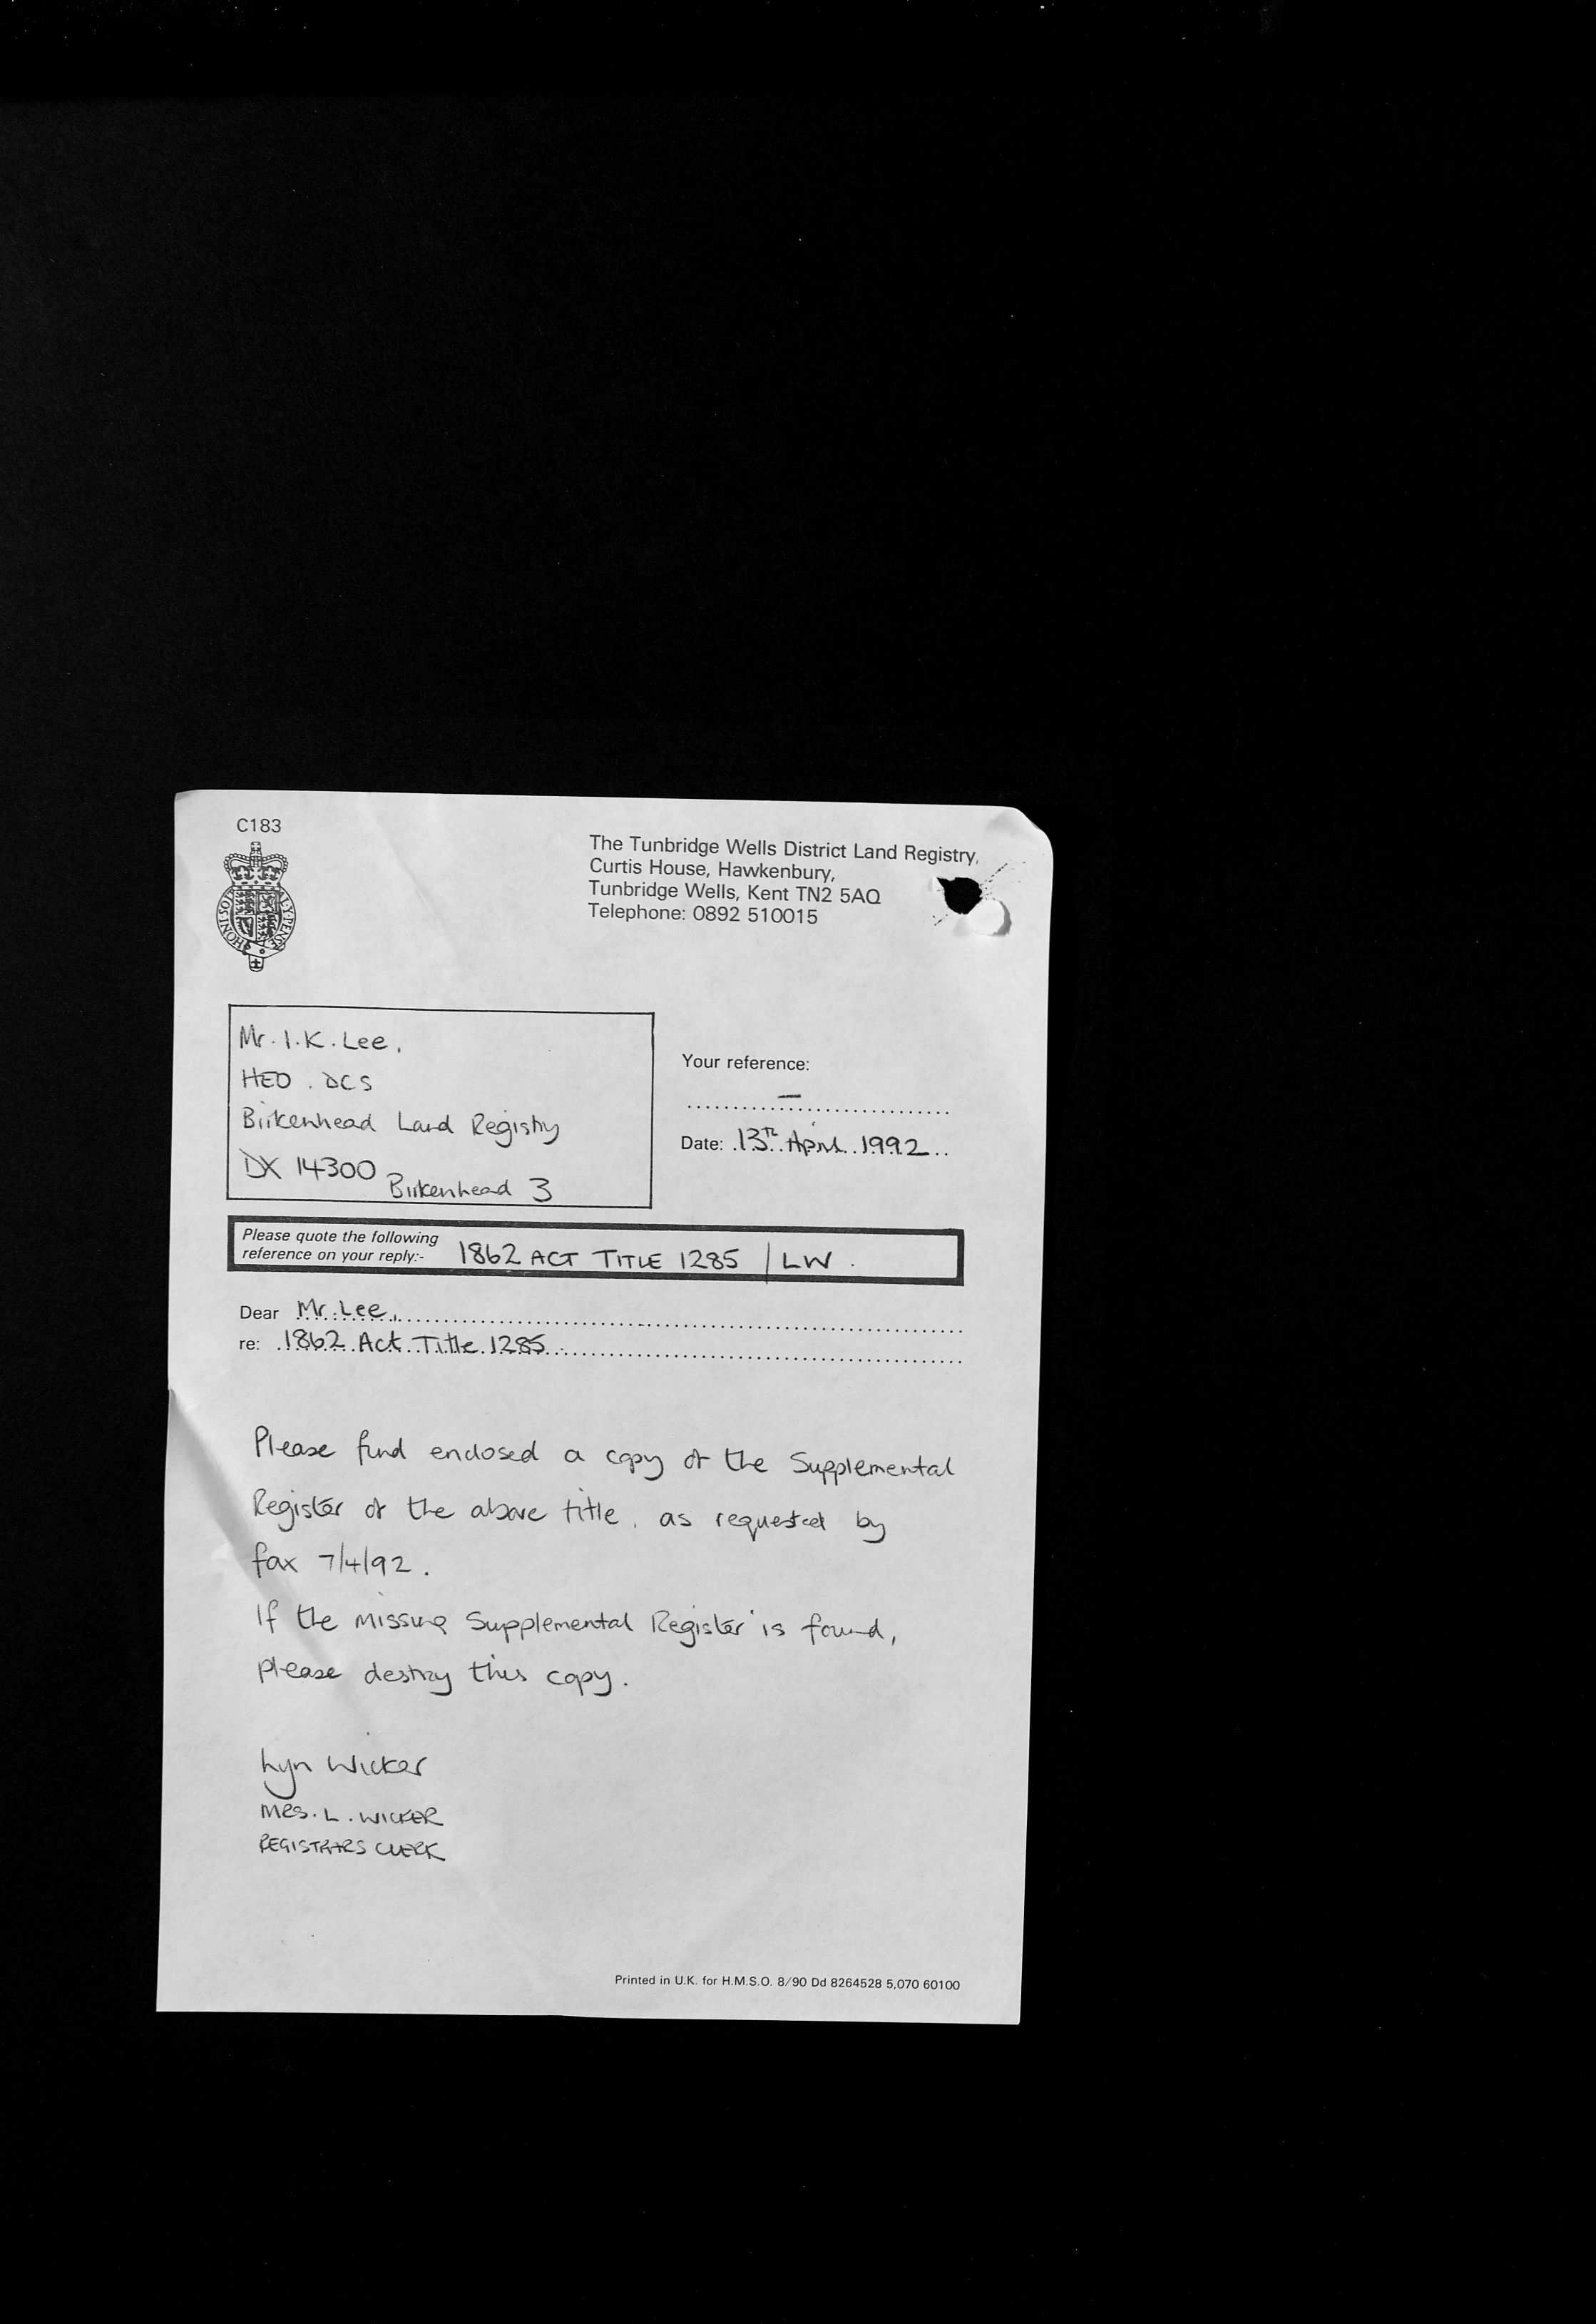 C183
The Tunbridge Wells District Land Registry,
Curtis House, Hawkenbury,
Tunbridge Wells, Kent TN2 5AQ
Telephone: 0892 510015
HONI·SOI AL·Y·PENC
Mr. I. K. Lee,
HEO. DCS
Birkenhead Land Registry
DX 14300
Birkenhead 3
Your reference:
–
Date: 13TH April 1992
Please quote the following
reference on your reply:- 1862 ACT TITLE 1285 / LW.
Dear Mr. Lee,
re: 1862 Act Title 1285
Please find enclosed a copy of the Supplemental
Register of the above title, as requested by
fax 7/4/92.
If the missing Supplemental Register is found,
please destroy this copy.
Lyn Wicker
MRS. L. WICKER
REGISTRARS CLERK
Printed in U.K. for H.M.S.O. 8/90 Dd 8264528 5,070 60100